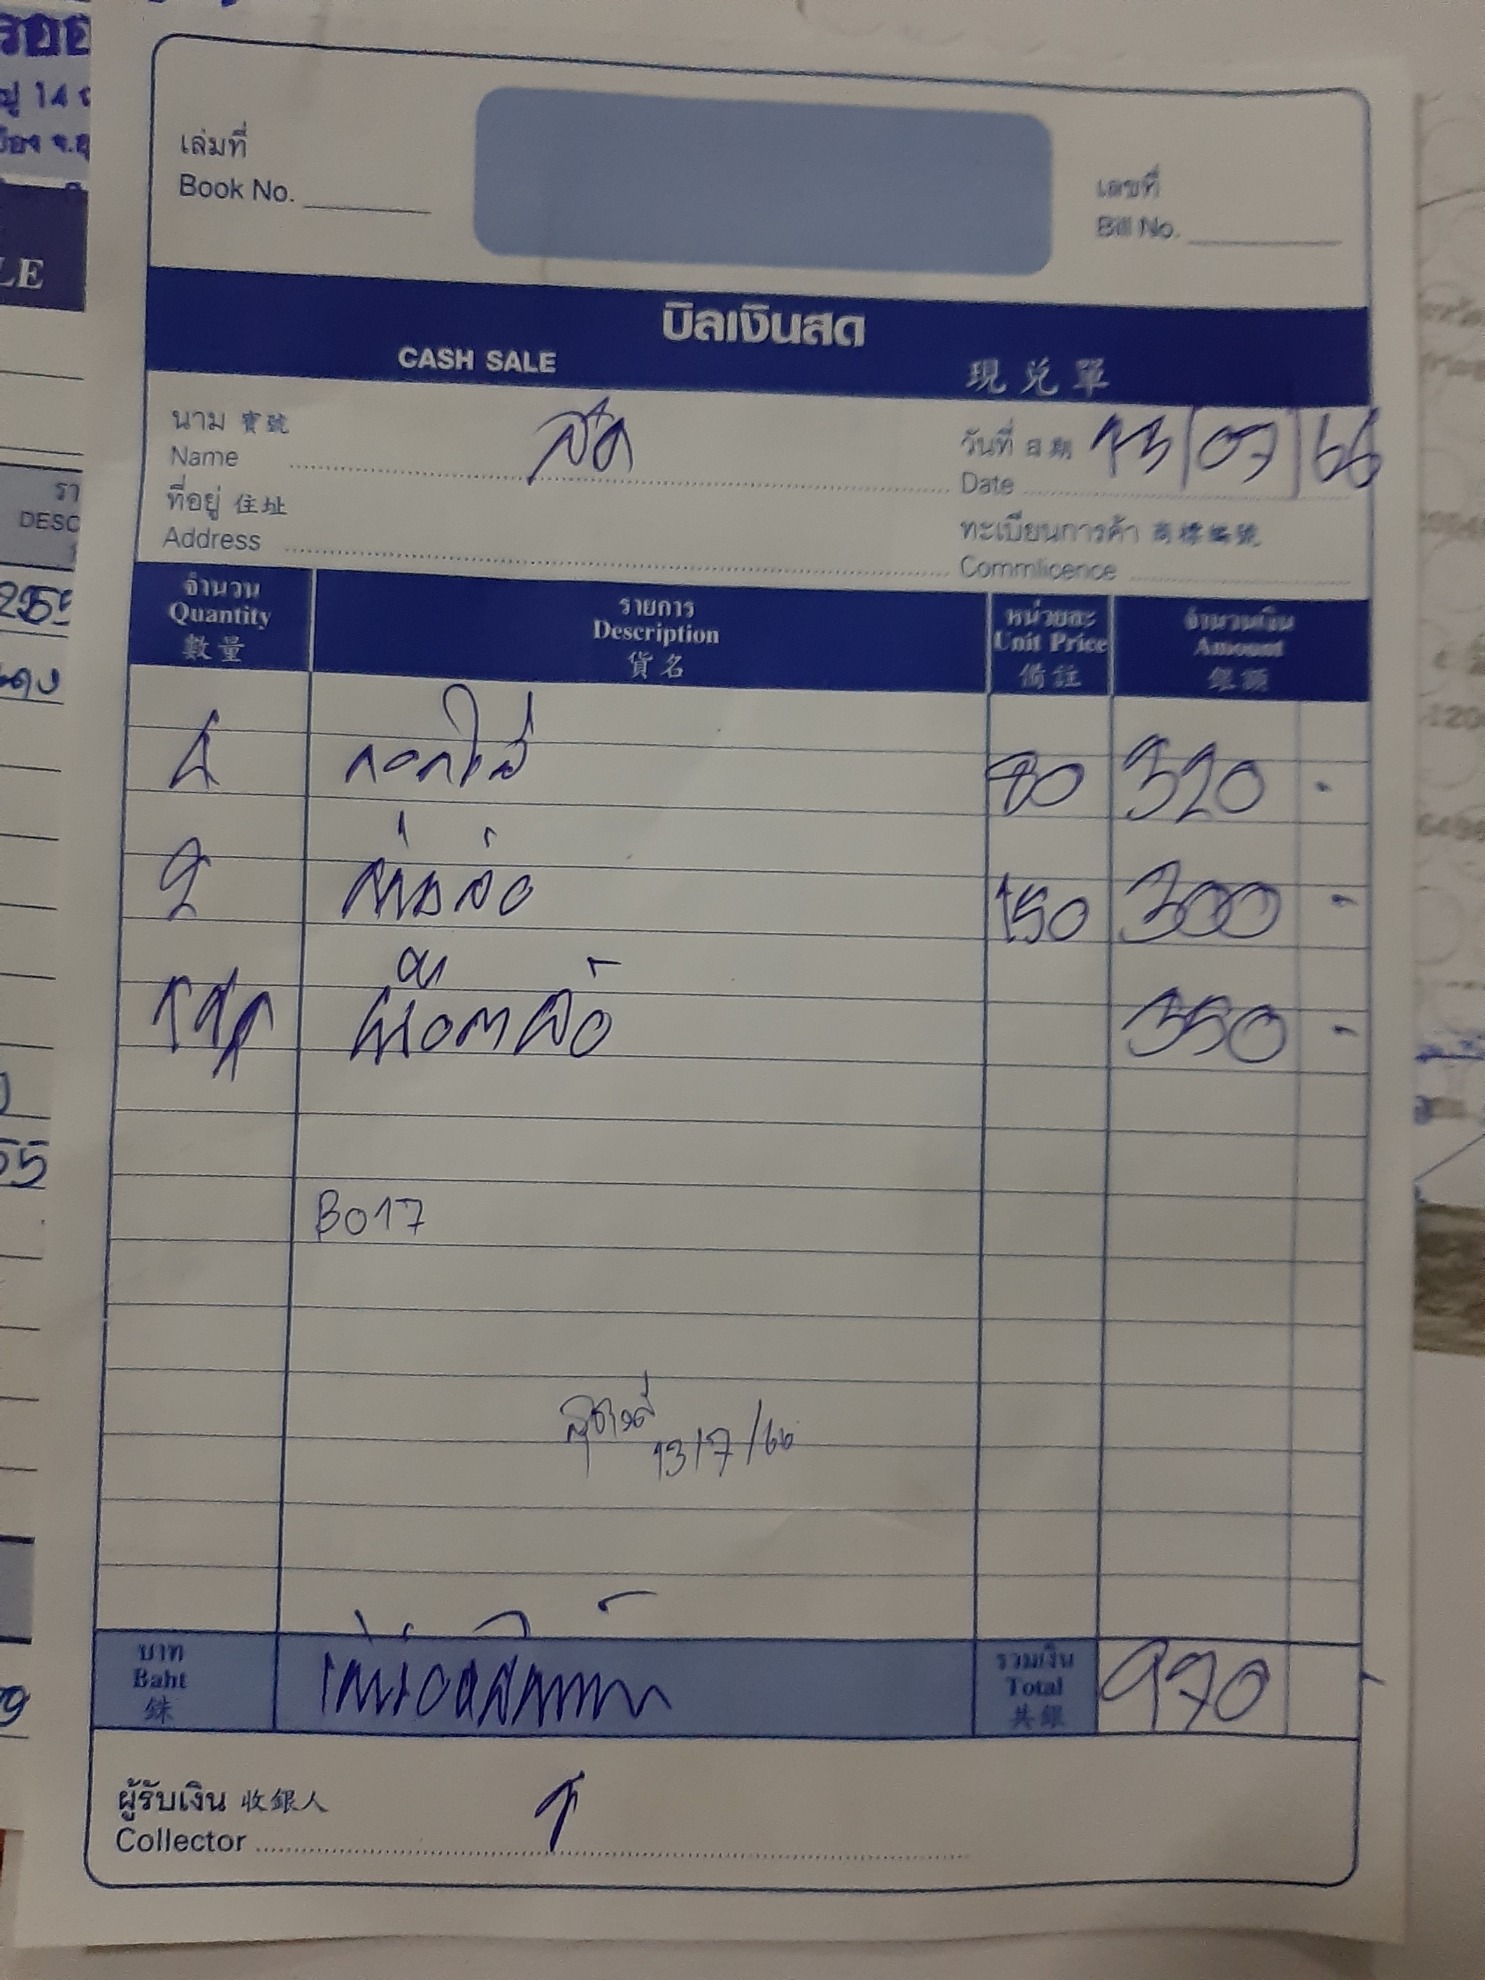 เล่มที่
Book No.
เลขที่
Bill No.
บิลเงินสด
CASH SALE
現兌單
นาม 寶號
Name
สด
วันที่ 日期
Date
13/07/66
ที่อยู่ 住址
Address
ทะเบียนการค้า 商標編號
Commlicence
จำนวน รายการ หน่วยละ จำนวนเงิน
Quantity Description Unit Price Amount
數量 貨名 備註 銀額
4 ดอกไม้ 80 320 -
2 150 300 -
1 ชุด 350 -
B017
13/7/66
บาท
Baht
銖
เก้าร้อยเจ็ดสิบบาท
รวมเงิน
Total
共銀
970 -
ผู้รับเงิน 收銀人
Collector